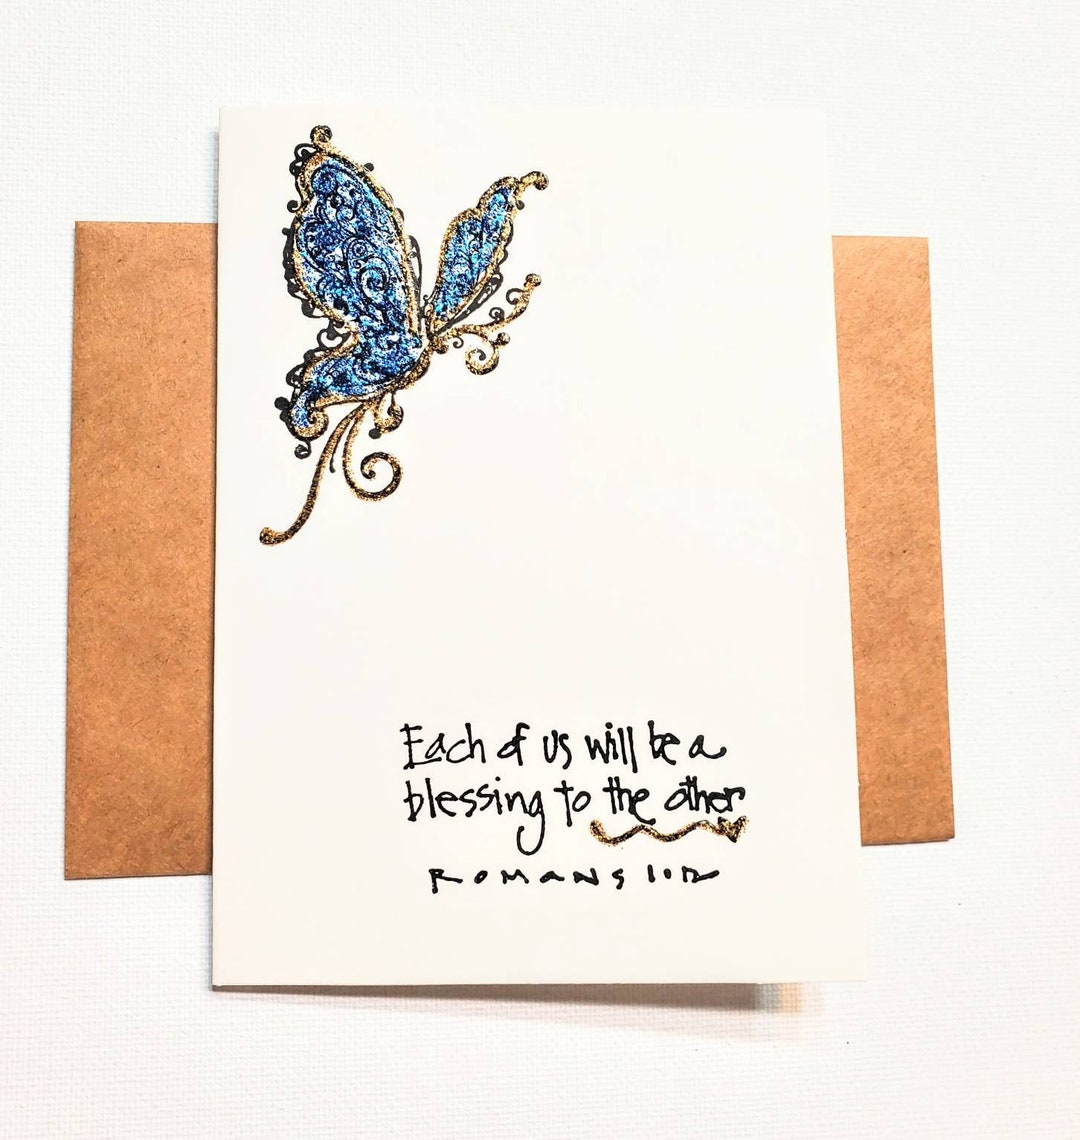 Each of us will be a
blessing to the other
ROMANS 1:12